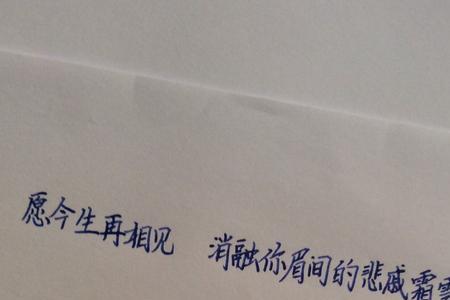 愿今生再相见 消融你眉间的悲戚霜雪